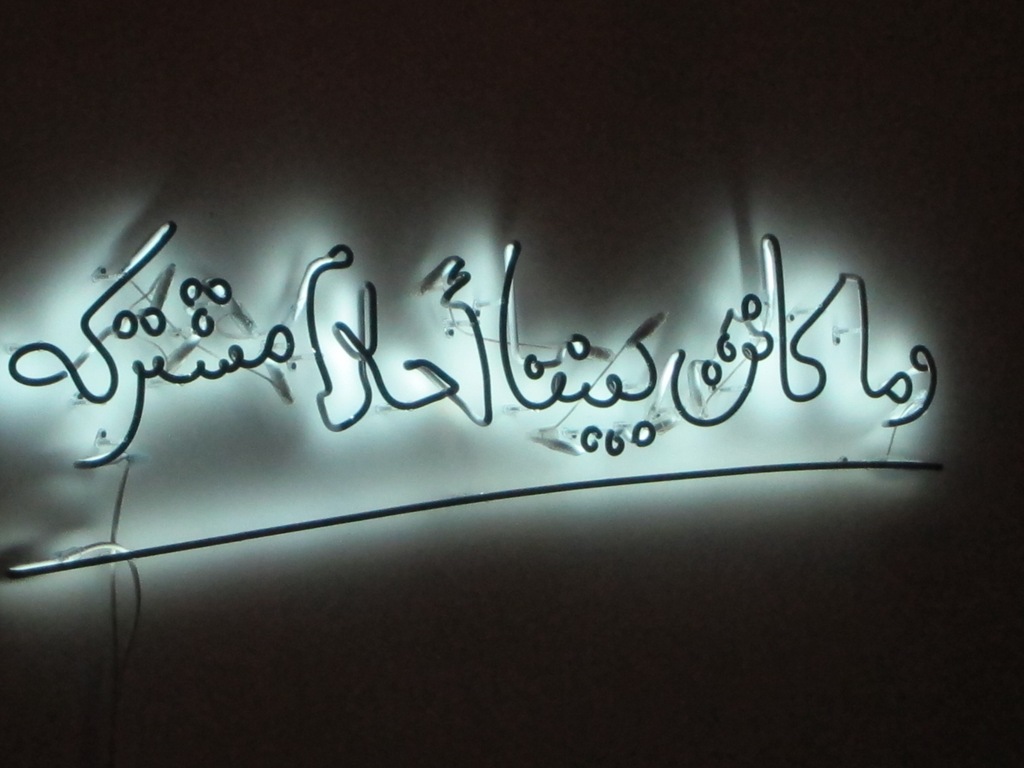 وما كانش بيننا أحلام مشتركه